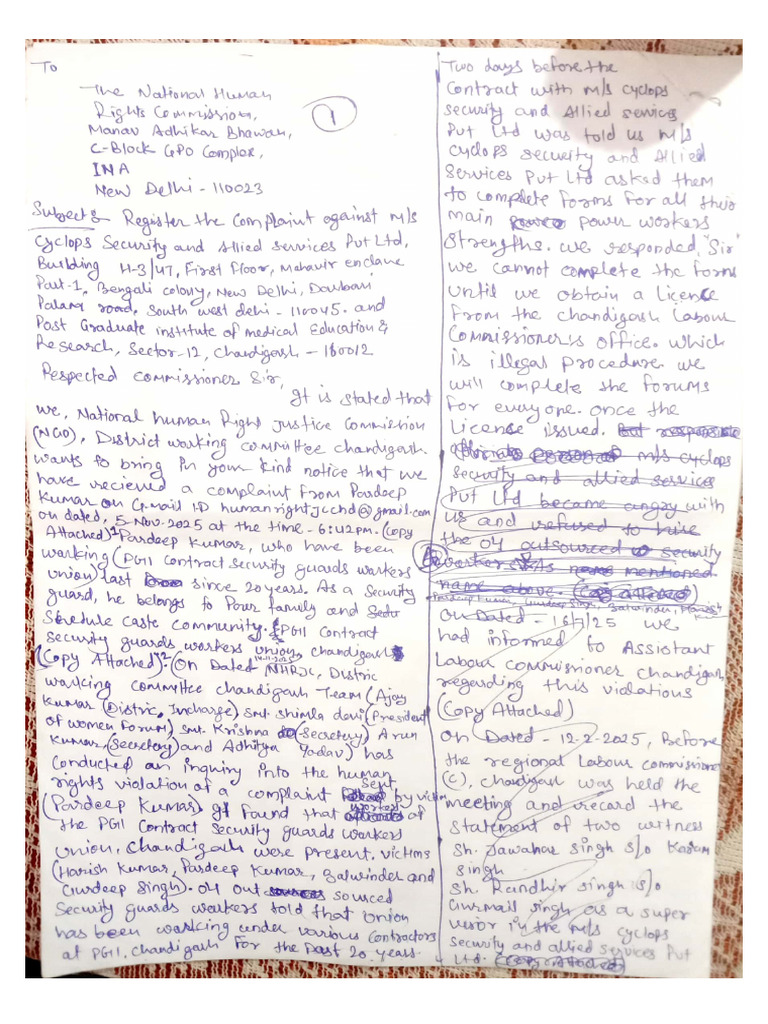 To
The National Human
Rights Commission,
Manav Adhikar Bhawan,
C-Block GPO Complex,
INA
New Delhi - 110023
1
Subject:- Register the Complaint against M/s
Cyclops Security and Allied Services Pvt Ltd,
Building H-3/47, First Floor, Mahavir enclave
Part-1, Bengali colony, New Delhi, Dawbari
Palam road, South west delhi - 110045. and
Post Graduate institute of medical Education &
Research, Sector-12, Chandigarh - 160012
Respected Commissioner Sir,
It is stated that
we, National human Right Justice Commistion
(NGO), District working committee Chandigarh.
wants to bring in your kind notice that we
have recieved a complaint from Pardeep
Kumar on G.mail I.D humanrightjcchd@gmail.com
on dated, 5 Nov. 2025 at the time - 6:42 PM. (Copy
Attached)1 Pardeep Kumar, who have been
working (PGII Contract security guards workers
union) last since 20 years. As a security
guard, he belongs to Poor family and
Schedule caste Community. (PGII Contract
security guards, workers union, chandigarh
(Copy Attached)-2 (On Dated NHRJC, Distric
working committee chandigarh Team (Ajay
Kumar (Distric, Incharge) smt. shimla devi (President
of women Forum) smt. Krishna (Secretary) Arun
Kumar, (Secretary) and Adhitya Yadav) has
Conducted an inquiry into the human
rights violation of a complaint Sept by victim
(Pardeep Kumar) It found that workers of
the PGII Contract Security guards workers
Union, Chandigarh were present. victims
(Harish Kumar, Pardeep Kumar, Balwinder and
Gurdeep Singh). 04 out sourced
Security guards workers told that Union
has been working under various Contractors
at PGII, Chandigarh for the past 20 years.
Two days before the
Contract with M/s cyclops
security and Allied services
Pvt Ltd was told us M/s
cyclops security and Allied
Services Pvt Ltd asked them
to complete forms for all their
main power workers
Strengths. we responded, "Sir"
we cannot complete the forms
until we obtain a licence
From the chandigarh Labour
Commissioner's office. which
is illegal procedure. we
will complete the forums
for everyone. once the
License issued. But
M/s cyclops
security and allied services
Pvt Ltd became angry with
us and refused to hire
the 04 outsourced security
workers. As mentioned
name above. (Copy attached)
On Dated - 16/7/25 we
had informed to Assistant
Labour commissioner chandigarh
regarding this violations
(Copy Attached)
On Dated - 12-2-2025, Before
the regional Labour commissione
(C), chandigarh was held the
meeting and record the
statement of two witness
sh. Jawahar singh s/o Karam
singh
sh. Randhir singh s/o
Gurmail singh as a super
visor in the M/s cyclops
security and allied services Pvt
Ltd. (Copy Attached)